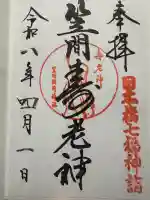 奉拝
日本橋七福神詣
笠間寿老神
寿老神
令和八年四月一日